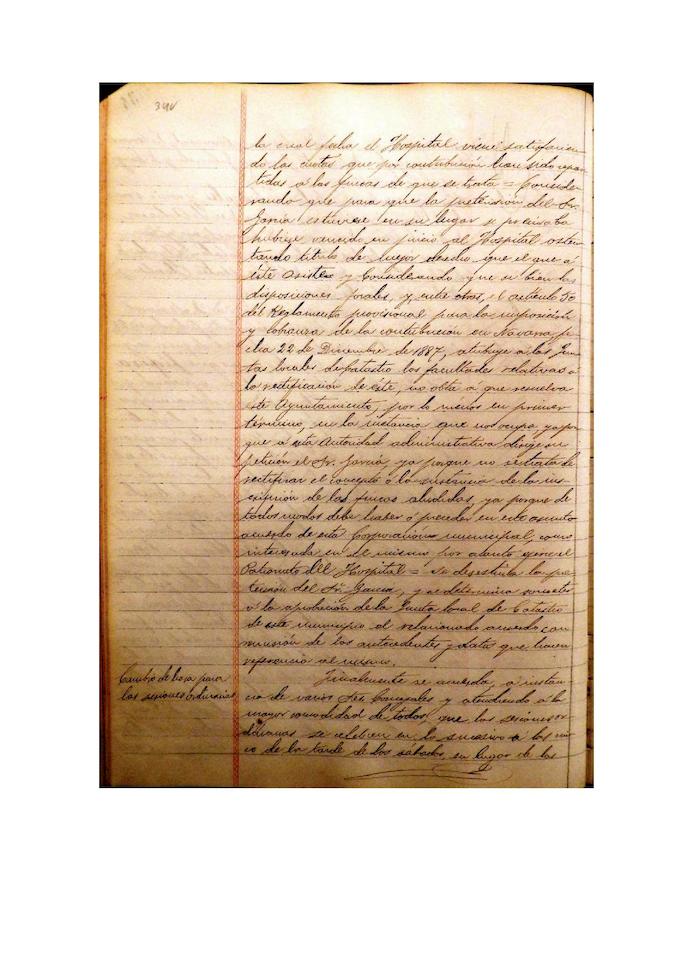 34v
la cual fecha el Hospital viene satisfacien-
do las cuotas que por contribución han sido repar-
tidas á las fincas de que se trata = Conside-
rando que para que la pretensión del Sr.
García estuviese en su lugar se precisaba
hubiese vencido en juicio al Hospital osten-
tando título de mejor derecho que el que á
este asiste y Considerando que si bien las
disposiciones forales, y entre otras, el artículo 50
del Reglamento provisional para la imposición
y cobranza de la contribución en Navarra, fe-
cha 22 de Diciembre de 1887, atribuye á las Jun-
tas locales de Catastro las facultades relativas á
la rectificación de éste, no obsta á que resuelva
este Ayuntamiento, por lo menos en primer
término, en la instancia que nos ocupa, ya por
que á esta Autoridad administrativa dirige su
petición el Sr. García, ya porque no se trata de
rectificar el concepto ó la sustancia de la ins-
cripción de las fincas aludidas, ya porque de
todos modos debe haber ó preceder en este asunto
acuerdo de esta Corporación municipal, como
interesada en el mismo por cuanto ejerce el
Patronato del Hospital = Se desestima la pre-
tensión del Sr. García, y se determina someter
á la aprobación de la Junta local de Catastro
de este municipio el relacionado acuerdo, con
remisión de los antecedentes y datos que hacen
referencia al mismo.
Cambio de hora para
las sesiones ordinarias
Finalmente se acuerda, á instan-
cia de varios Sres. Concejales y atendiendo á la
mayor comodidad de todos, que las sesiones or-
dinarias se celebren en lo sucesivo á las cin-
co de la tarde de los sábados, en lugar de las